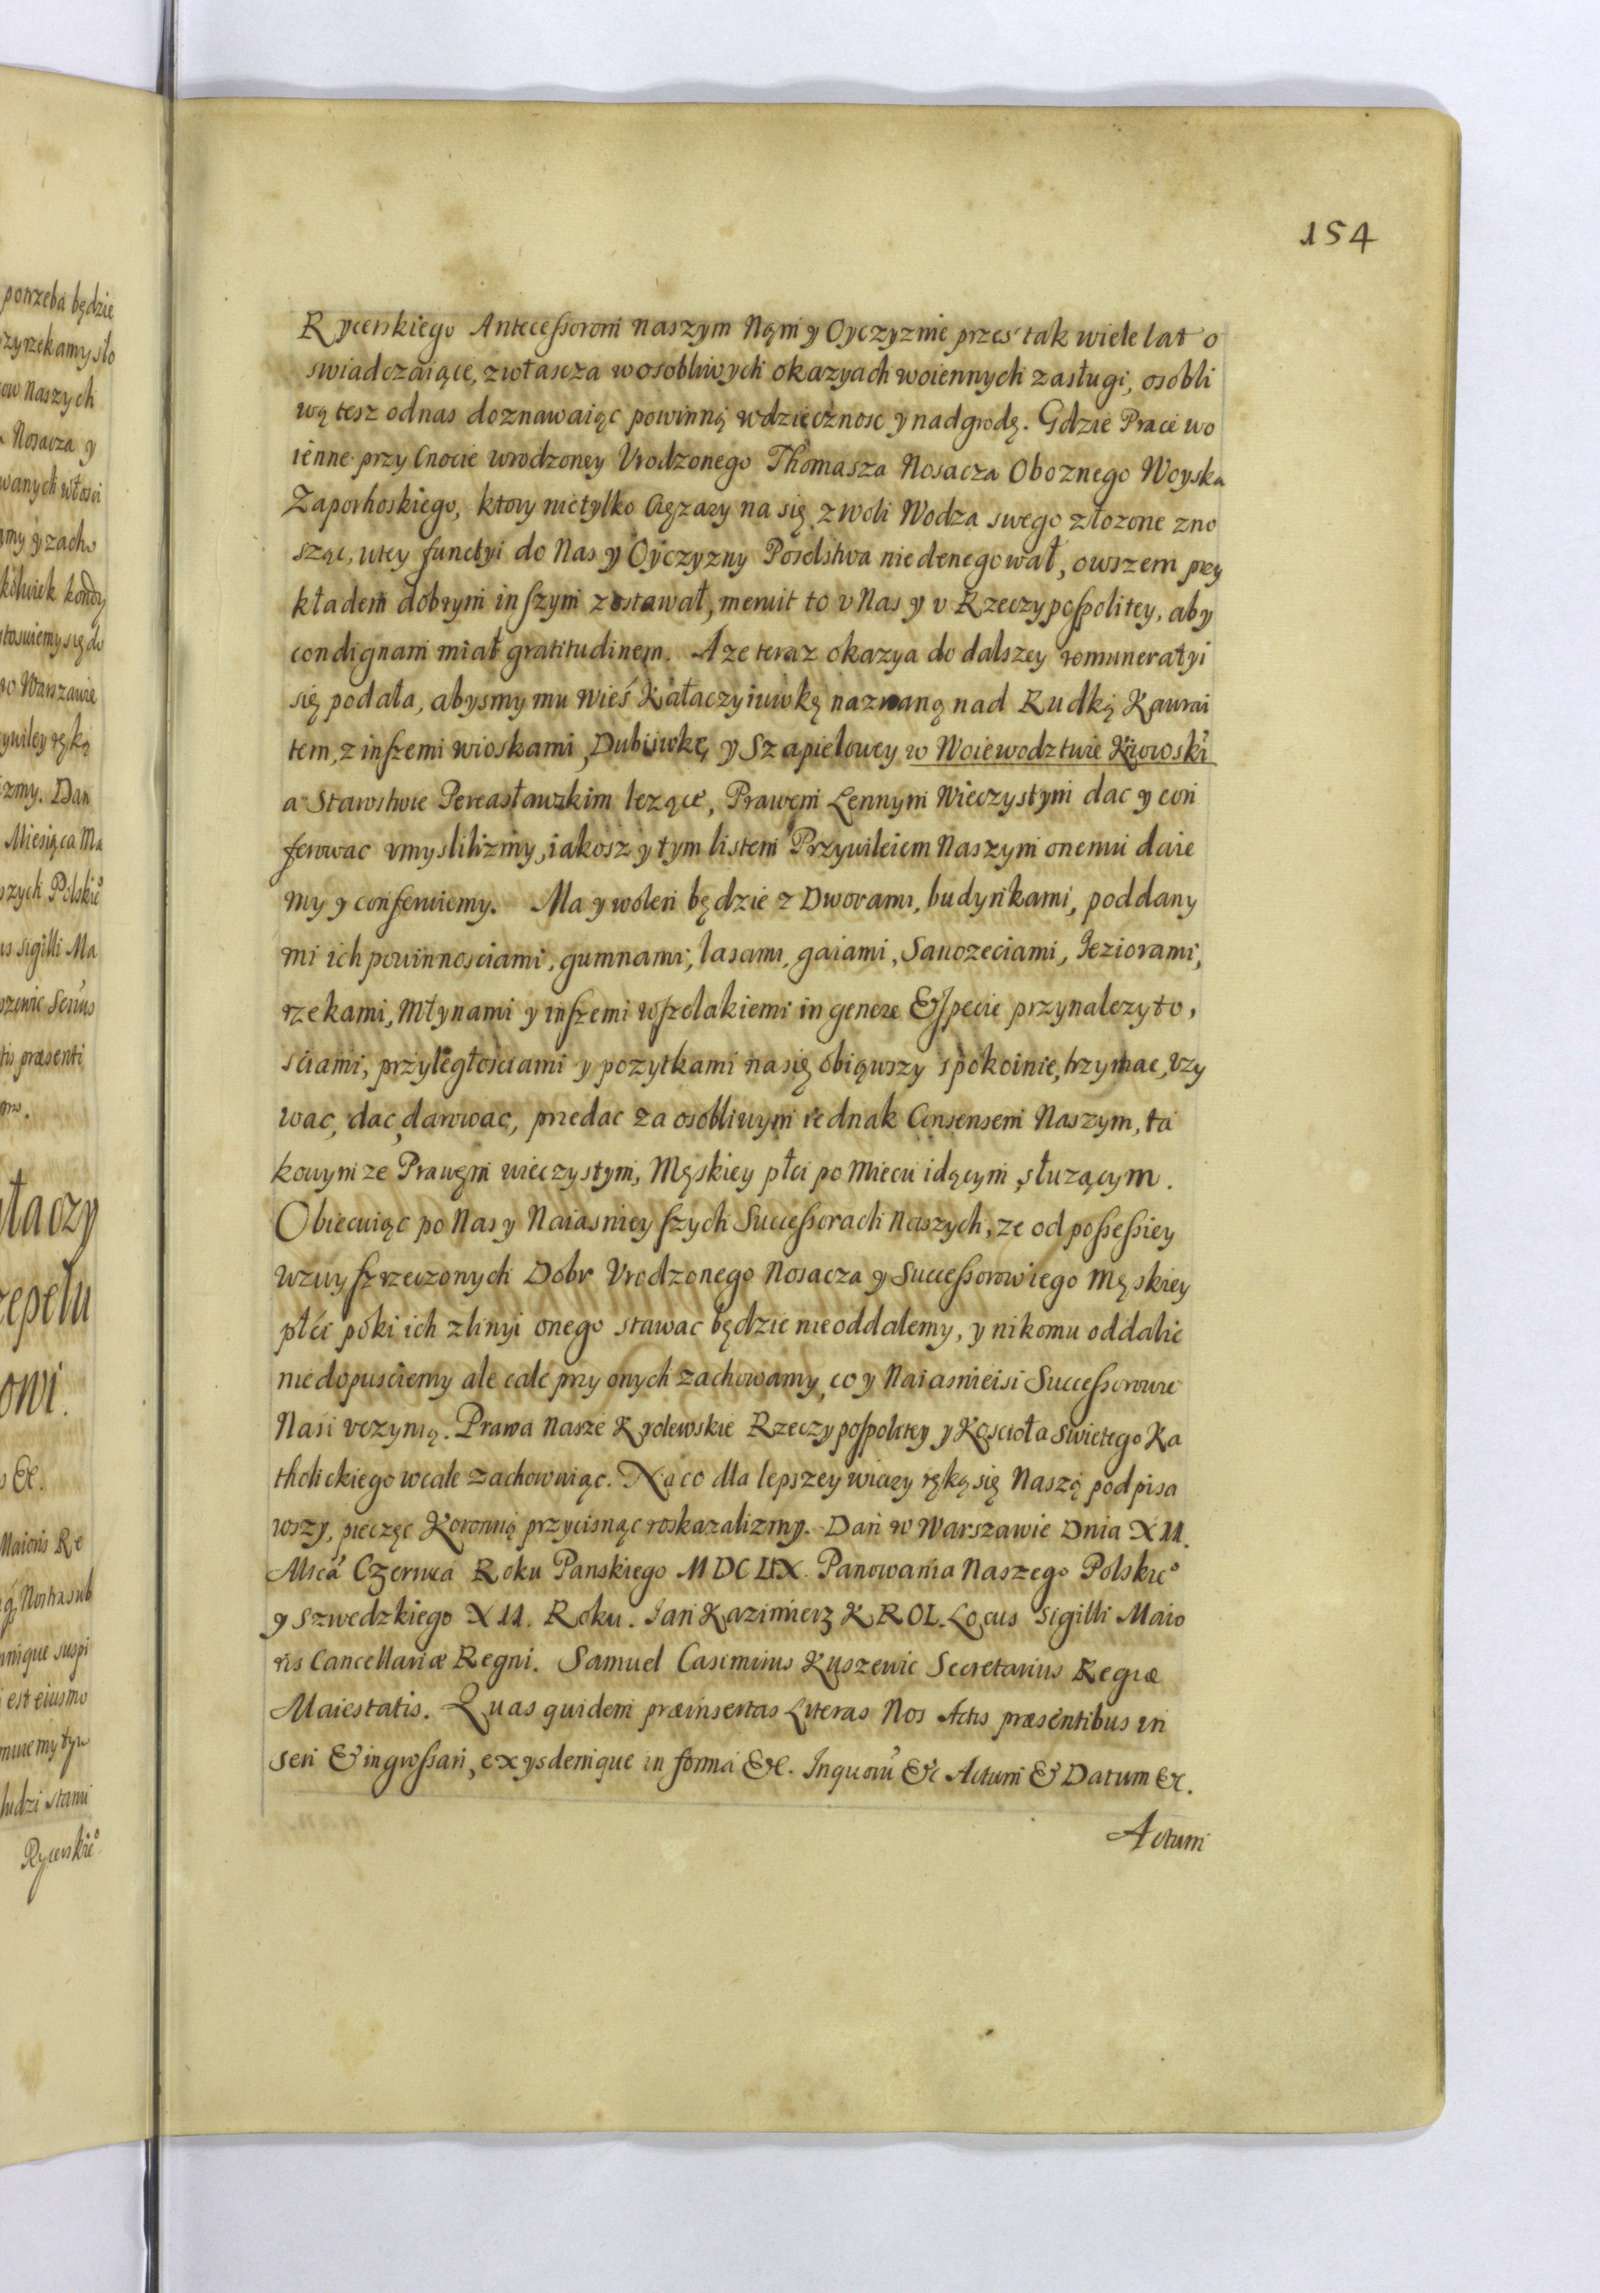 154
Rycerskiego Antecessorom naszym Nam y Oyczyznie przes tak wiele lat o
swiadczaiące, zwłascza w osobliwych okazyach woiennych zasługi, osobli
wą tesz od nas doznawaiąc powinną wdzięcznosc y nadgrodę. Gdzie Prace wo
ienne przy Cnocie wrodzoney Vrodzonego Thomasza Nosacza Oboznego Woyska
Zaporhoskiego, ktory nietylko Ciężary na się z woli Wodza swego złozone zno
sząc, wtey functyi do Nas y Oyczyzny Poselstwa niedenegował, owszem przy
kładem dobrym inszym zostawał, meruit to v Nas y v Rzeczyposspolitey, aby
condignam miał gratitudinem. A ze teraz okazya do dalszey remuneratyi
się podała, abysmy mu wieś Kałaczyiuwkę nazwaną nad Rudką Kawrai
tem, z inszemi wioskami, Dubiiwkę y Szapielowey w Woiewodztwie Kiiowoskì
a Starostwie Pereasławzkim lezące, Prawem Lennym Wieczystym dac y con
ferowac vmyslilizmy, iakosz y tym listem Przywileiem Naszym onemu daie
my y conferuiemy. Ma y wolen będzie z Dworami, budynkami, poddany
mi ich powinnosciami, gumnami, lasami, gaiami, Sanozeciami, Jeziorami,
rzekami, Młynami y inszemi wszelakiemi in genere & specie przynalezyto,
sciami, przyległosciami y pozytkami na się obiąwszy spokoinie, trzymac, vzy
wac, dac, darowac, przedac za osobliwym iednak Consensem Naszym, ta
kowymze Prawem wieczystym, Męskiey płci po Mieczu idącym słuzącym.
Obiecuiąc po Nas y Naiasnieyszych Successorach Naszych, ze od possessiey
wzwyszrzeczonych Dobr Vrodzonego Nosacza y Successorow iego Męskiey
płci poki ich z linyi onego stawac będzie nieoddalemy, y nikomu oddalic
niedopusciemy ale cale przy onych zachowamy, co y Naiasnieisi Successorowie
Nasi vczynią. Prawa Nasze Krolewskie Rzeczyposspolitey y Koscioła Swiętego Ka
tholickiego wcale zachowuiąc. Na co dla lepszey wiary ręką się Naszą podpisa
wszy, pieczęc Koronną przycisnąc roskazalizmy. Dan w Warszawie Dnia XII.
Mieā Czerwca Roku Panskiego MDCLIX. Panowania Naszego Polskieº
y Szwedzkiego XII. Roku. Jan Kazimierz KROL. Locus Sigilli Maio
ris Cancellariæ Regni. Samuel Casimirus Kuszewic Secretarius Regiæ
Maiestatis. Quas quidem præinsertas Literas Nos Actis præsentibus in
seri & ingrossari, ex ysdemque in forma &c. In quorū &c Actum & Datum &c.
Actum